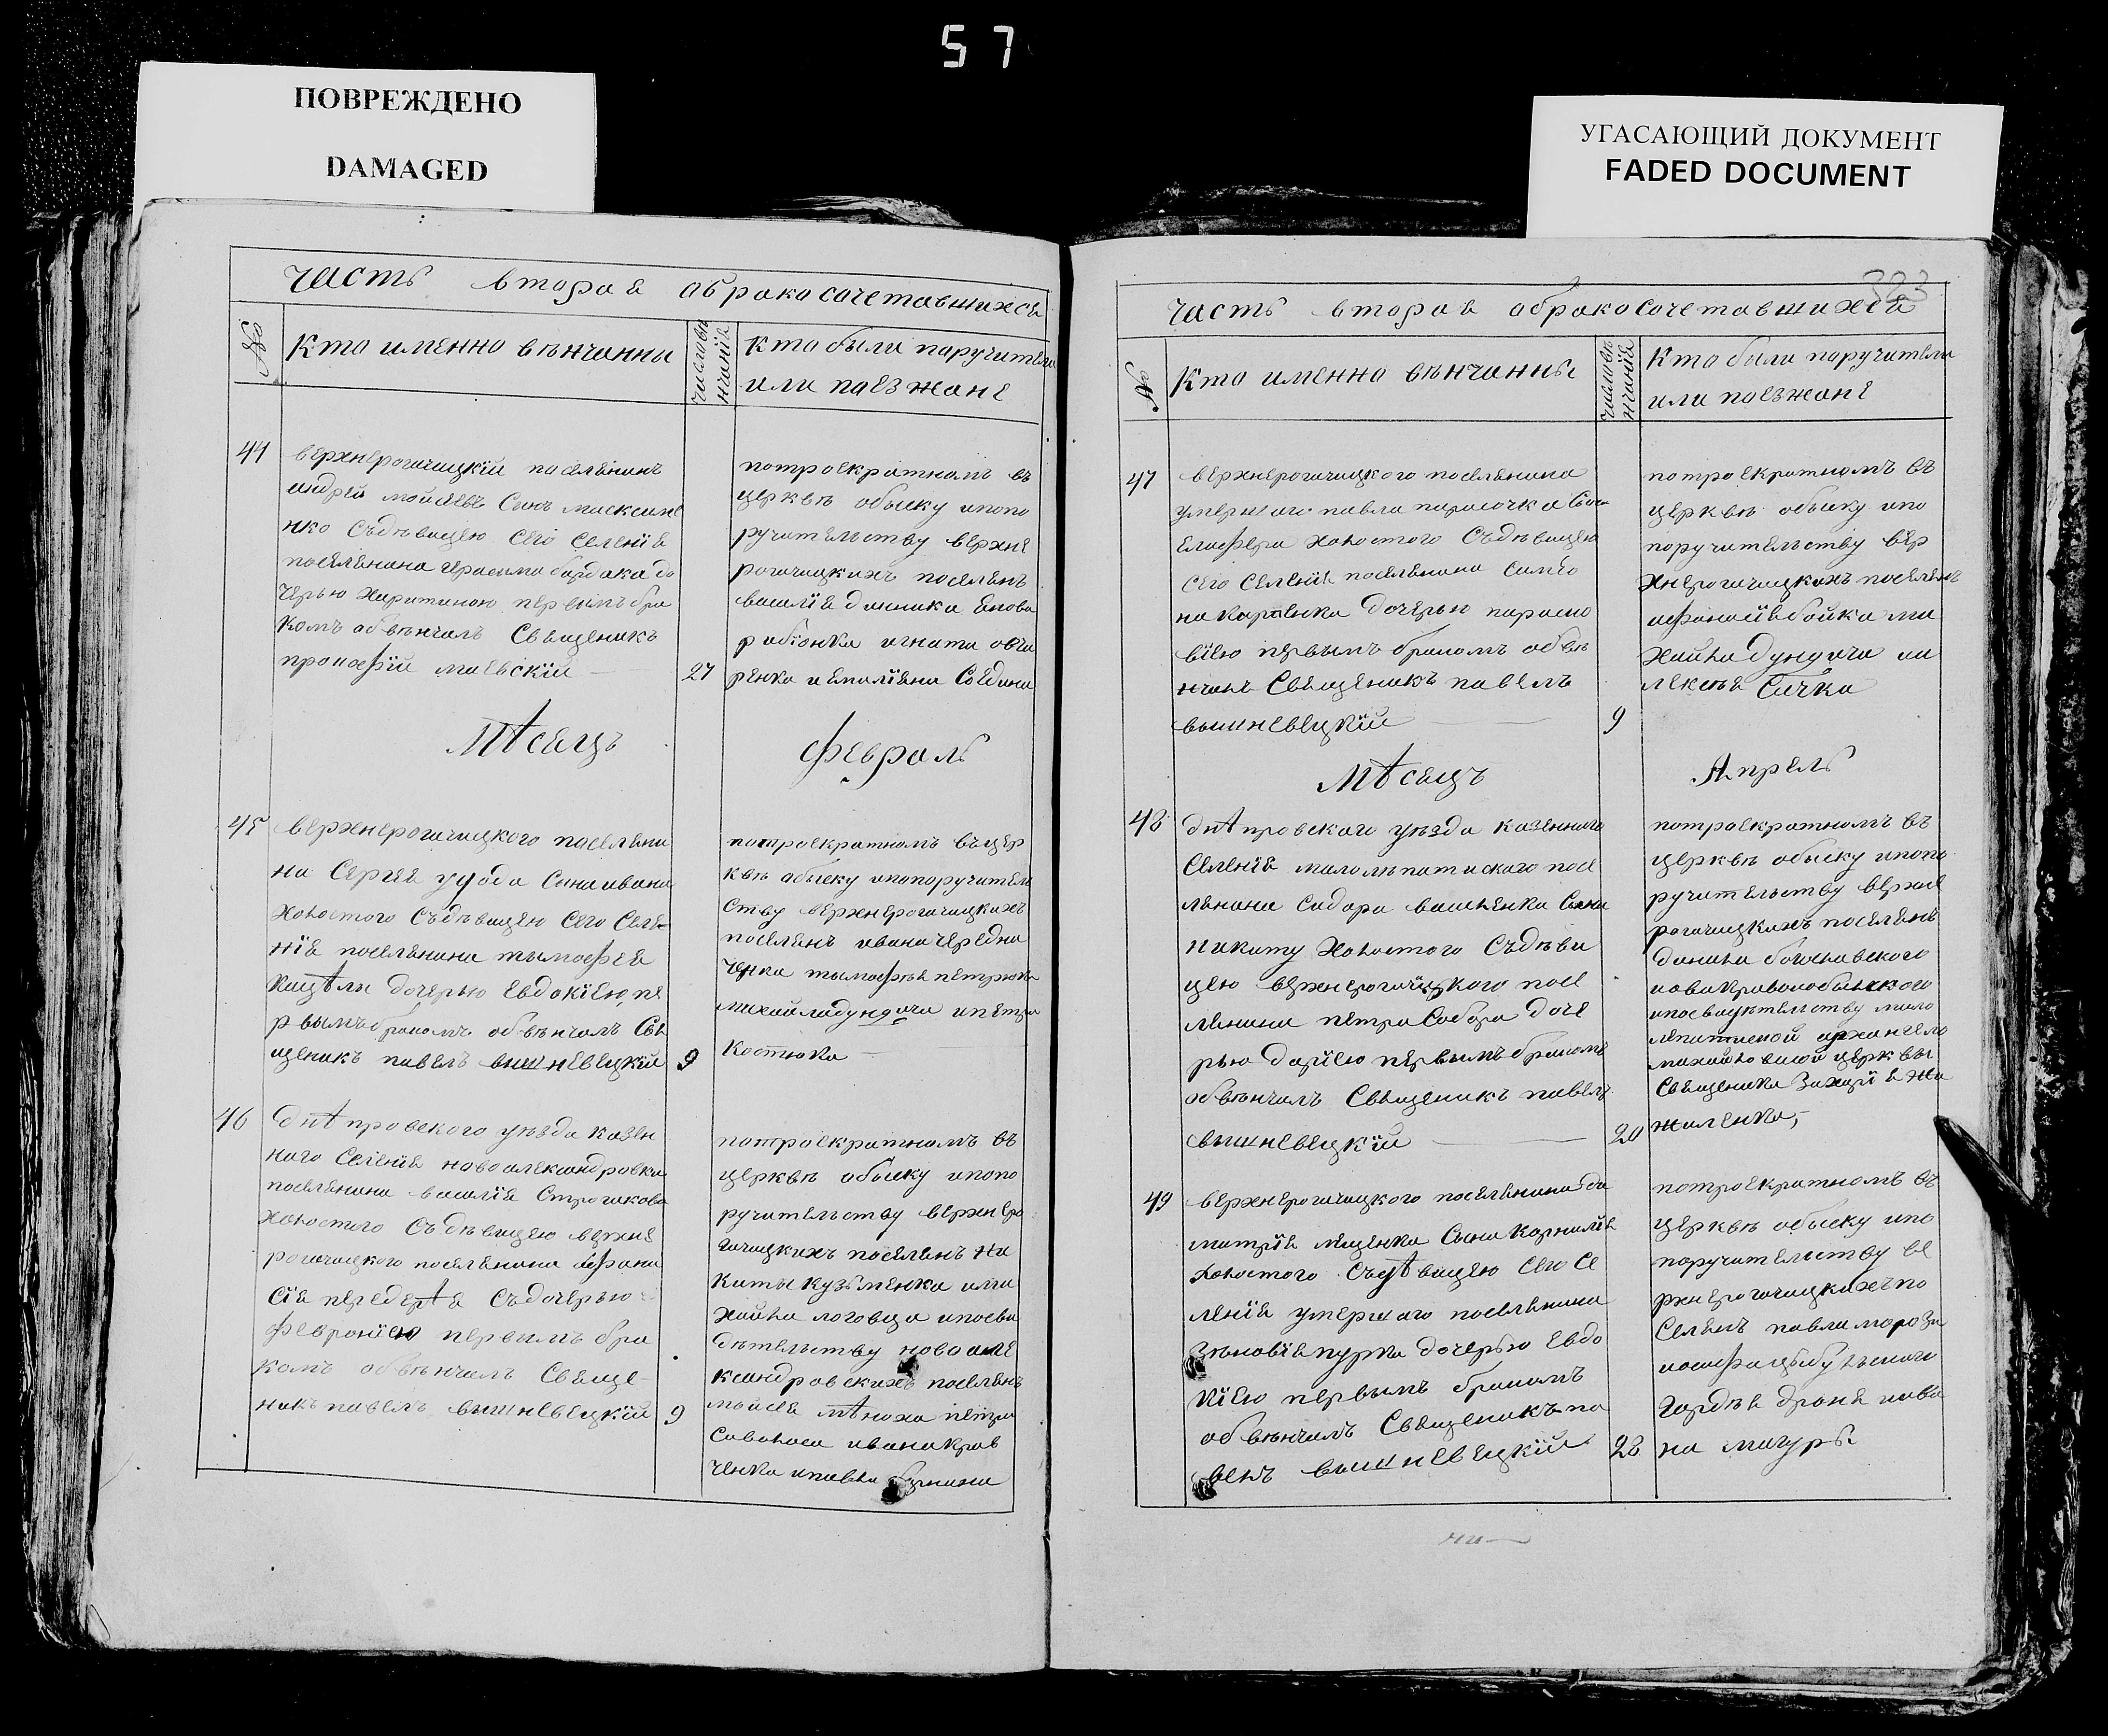 57
ПОВРЕЖДЕНО
DAMAGED
УГАСАЮЩИЙ ДОКУМЕНТ
FADED DOCUMENT
часть втораа абрако сочетавшихса
№
Кто именно вѣнчанны
число вѣ
нчанїя
Кто были паручители
или паезжане
44
верхнерогачицкїй поселянинъ
андрей мойсеевъ Сынъ максиме
нко Съдѣвицею Сего Селенїя
поселянина герасима бардака до
черью Харитиною первымъ бра
комъ обвѣнчалъ Свещеникъ
прокофїй маевскїй
27
потроекратномъ въ
церквѣ обыску ипопо
ручительству верхне
рогачицкихъ поселянъ
василїя дшника якова
рабконка игната овча
ренка иемилїяна
Мѣсецъ
Февраль
45
верхнерогачицкого поселяни
на Сергея удода Сына ивана
Холостого Съдѣвицею Сего Селе-
нїя поселянина тымофея
Кацѣлы дочерью Евдокїею пе
рвымъ бракомъ обвѣнчалъ Све
щеникъ павелъ вышневецкїй
9
потроекратномъ въцер
квѣ абыску ипопоручитель
Ству верхнерогачицкихъ
поселянъ ивана чередни
ченка тымофѣя петрика
михайла дундича ипетра
Костюка
46
Днѣпровского уѣзда казен
ного Селенїя новоалександровки
поселянина василїя Строгикова
Холостого Съдѣвицею верхне
рогачицкого поселянина Афана
сїя передерѣя Съдочерью
Февронїею первымъ бра
комъ обвѣнчалъ Свеще-
никъ павелъ вышневецкїй
9
потроекратномъ въ
церквѣ обыску ипопо
ручительству верхнеро
гачицкихъ поселянъ Ни
киты кузьменка ими
Хайла логовца ипосви
дѣтельству новоале
ксандровскихъ поселянъ
мойсея мѣноха петра
Саволоса ивана крав
ченка ипавла
323
часть втораа абрако сочетавшихса
№
Кто именно вѣнчанны
число вѣ
нчанїя
Кто были паручители
или поезжане
47
верхнерогачицкого поселянина
умершаго павла парасочка Сына
Елефера Холостого Съдѣвицею
Сего Селенїя поселянина Самсо
на Картенка дочерью параско
вїею первымъ бракомъ обвѣ
нчалъ Свещеникъ павелъ
вышневецкїй
9
потроекратномъ въ
церквѣ обыску ипо
поручительству вер
Хнерогачицкихъ поселянъ
афанасїя бойка ми
Хайла дундича иа
лексѣя Сичка
Мѣсецъ
Апрель
48
днѣпровского уѣзда казенного
Селенїя малолѣпатиского посе
лянина Сидора вашенка Сына
никиту Холостого Съдѣви
цею верхнерогачицкого посе
лянина петра Собора доче
рью дарїею первымъ бракомъ
обвѣнчалъ Свещеникъ павелъ
вышневецкїй
20
потроекратномъ въ
церквѣ обыску ипопо
ручительству верхне
рогачицкихъ поселянъ
данила
ипосвидѣтельству мало
лепатиской архангело
михайловской церквы
Свещеника Захарїя Жи
жиленка,
49
верхнерогачицкого поселянина
митрїя мяценка Сына Карнилїя
Холостого Съдѣвицею Сего Се
ленїя умершаго поселянина
Зѣновїя курка дочерью Евдо
кїею первымъ бракомъ
обвѣнчалъ Свещеникъ па
велъ вышневецкїй
28
потроекратномъ въ
церквѣ обыску ипо
поручительству ве
рхнерогачицкихъ по
Селянъ павла мороза
иосифа
гордѣя дроня иива
на мачуры